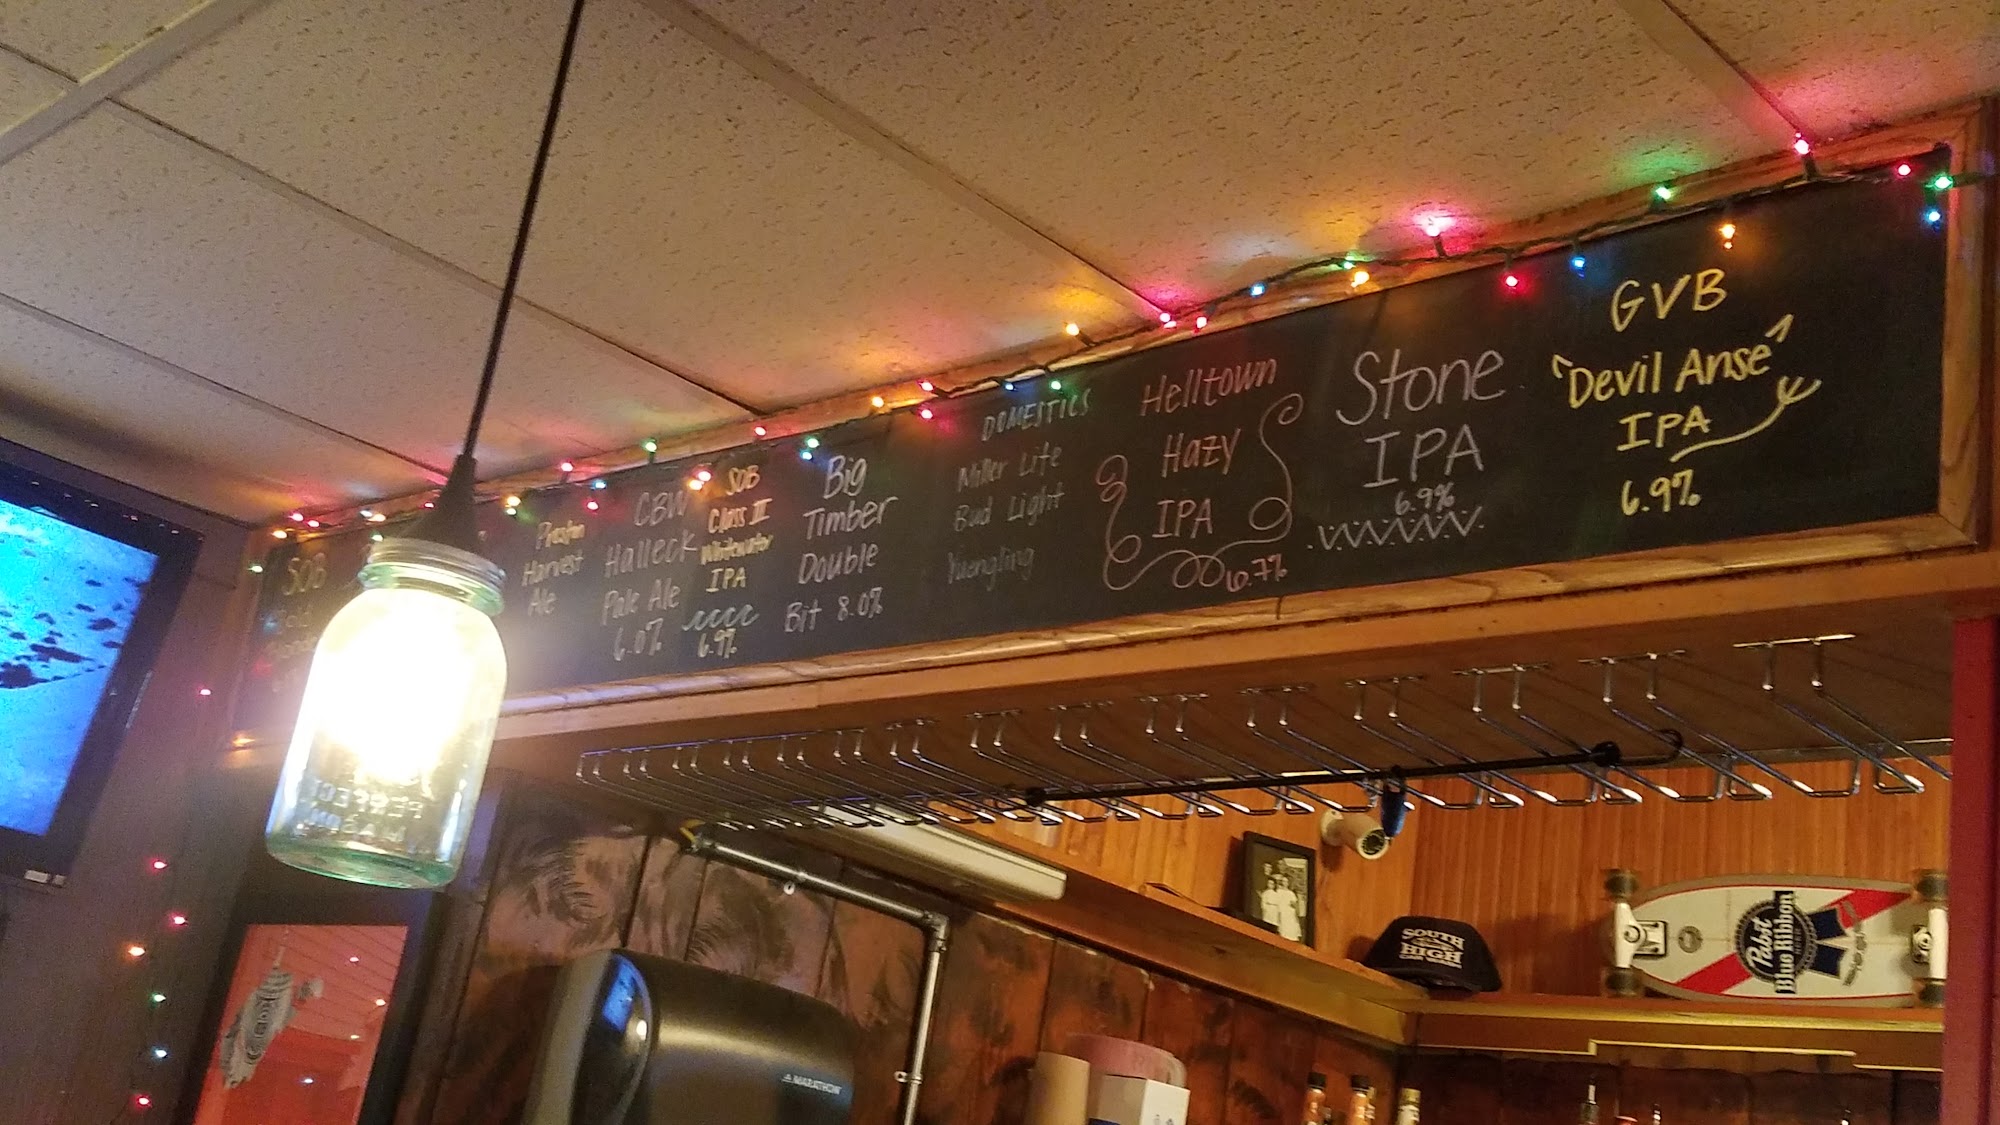 SOB
Preston
Harvest
Ale
CBW
Halleck
Pale Ale
6.0%
SOB
Class III
Whitewater
IPA
6.9%
Big
Timber
Double
Bit 8.0%
DOMESTICS
Miller Lite
Bud Light
Yuengling
Helltown
Hazy
IPA
6.7%
Stone
IPA
6.9%
GVB
"Devil Anse"
IPA
6.9%
PERFECT
MASON
MARATHON
SOUTH
HIGH
Pabst
Blue Ribbon